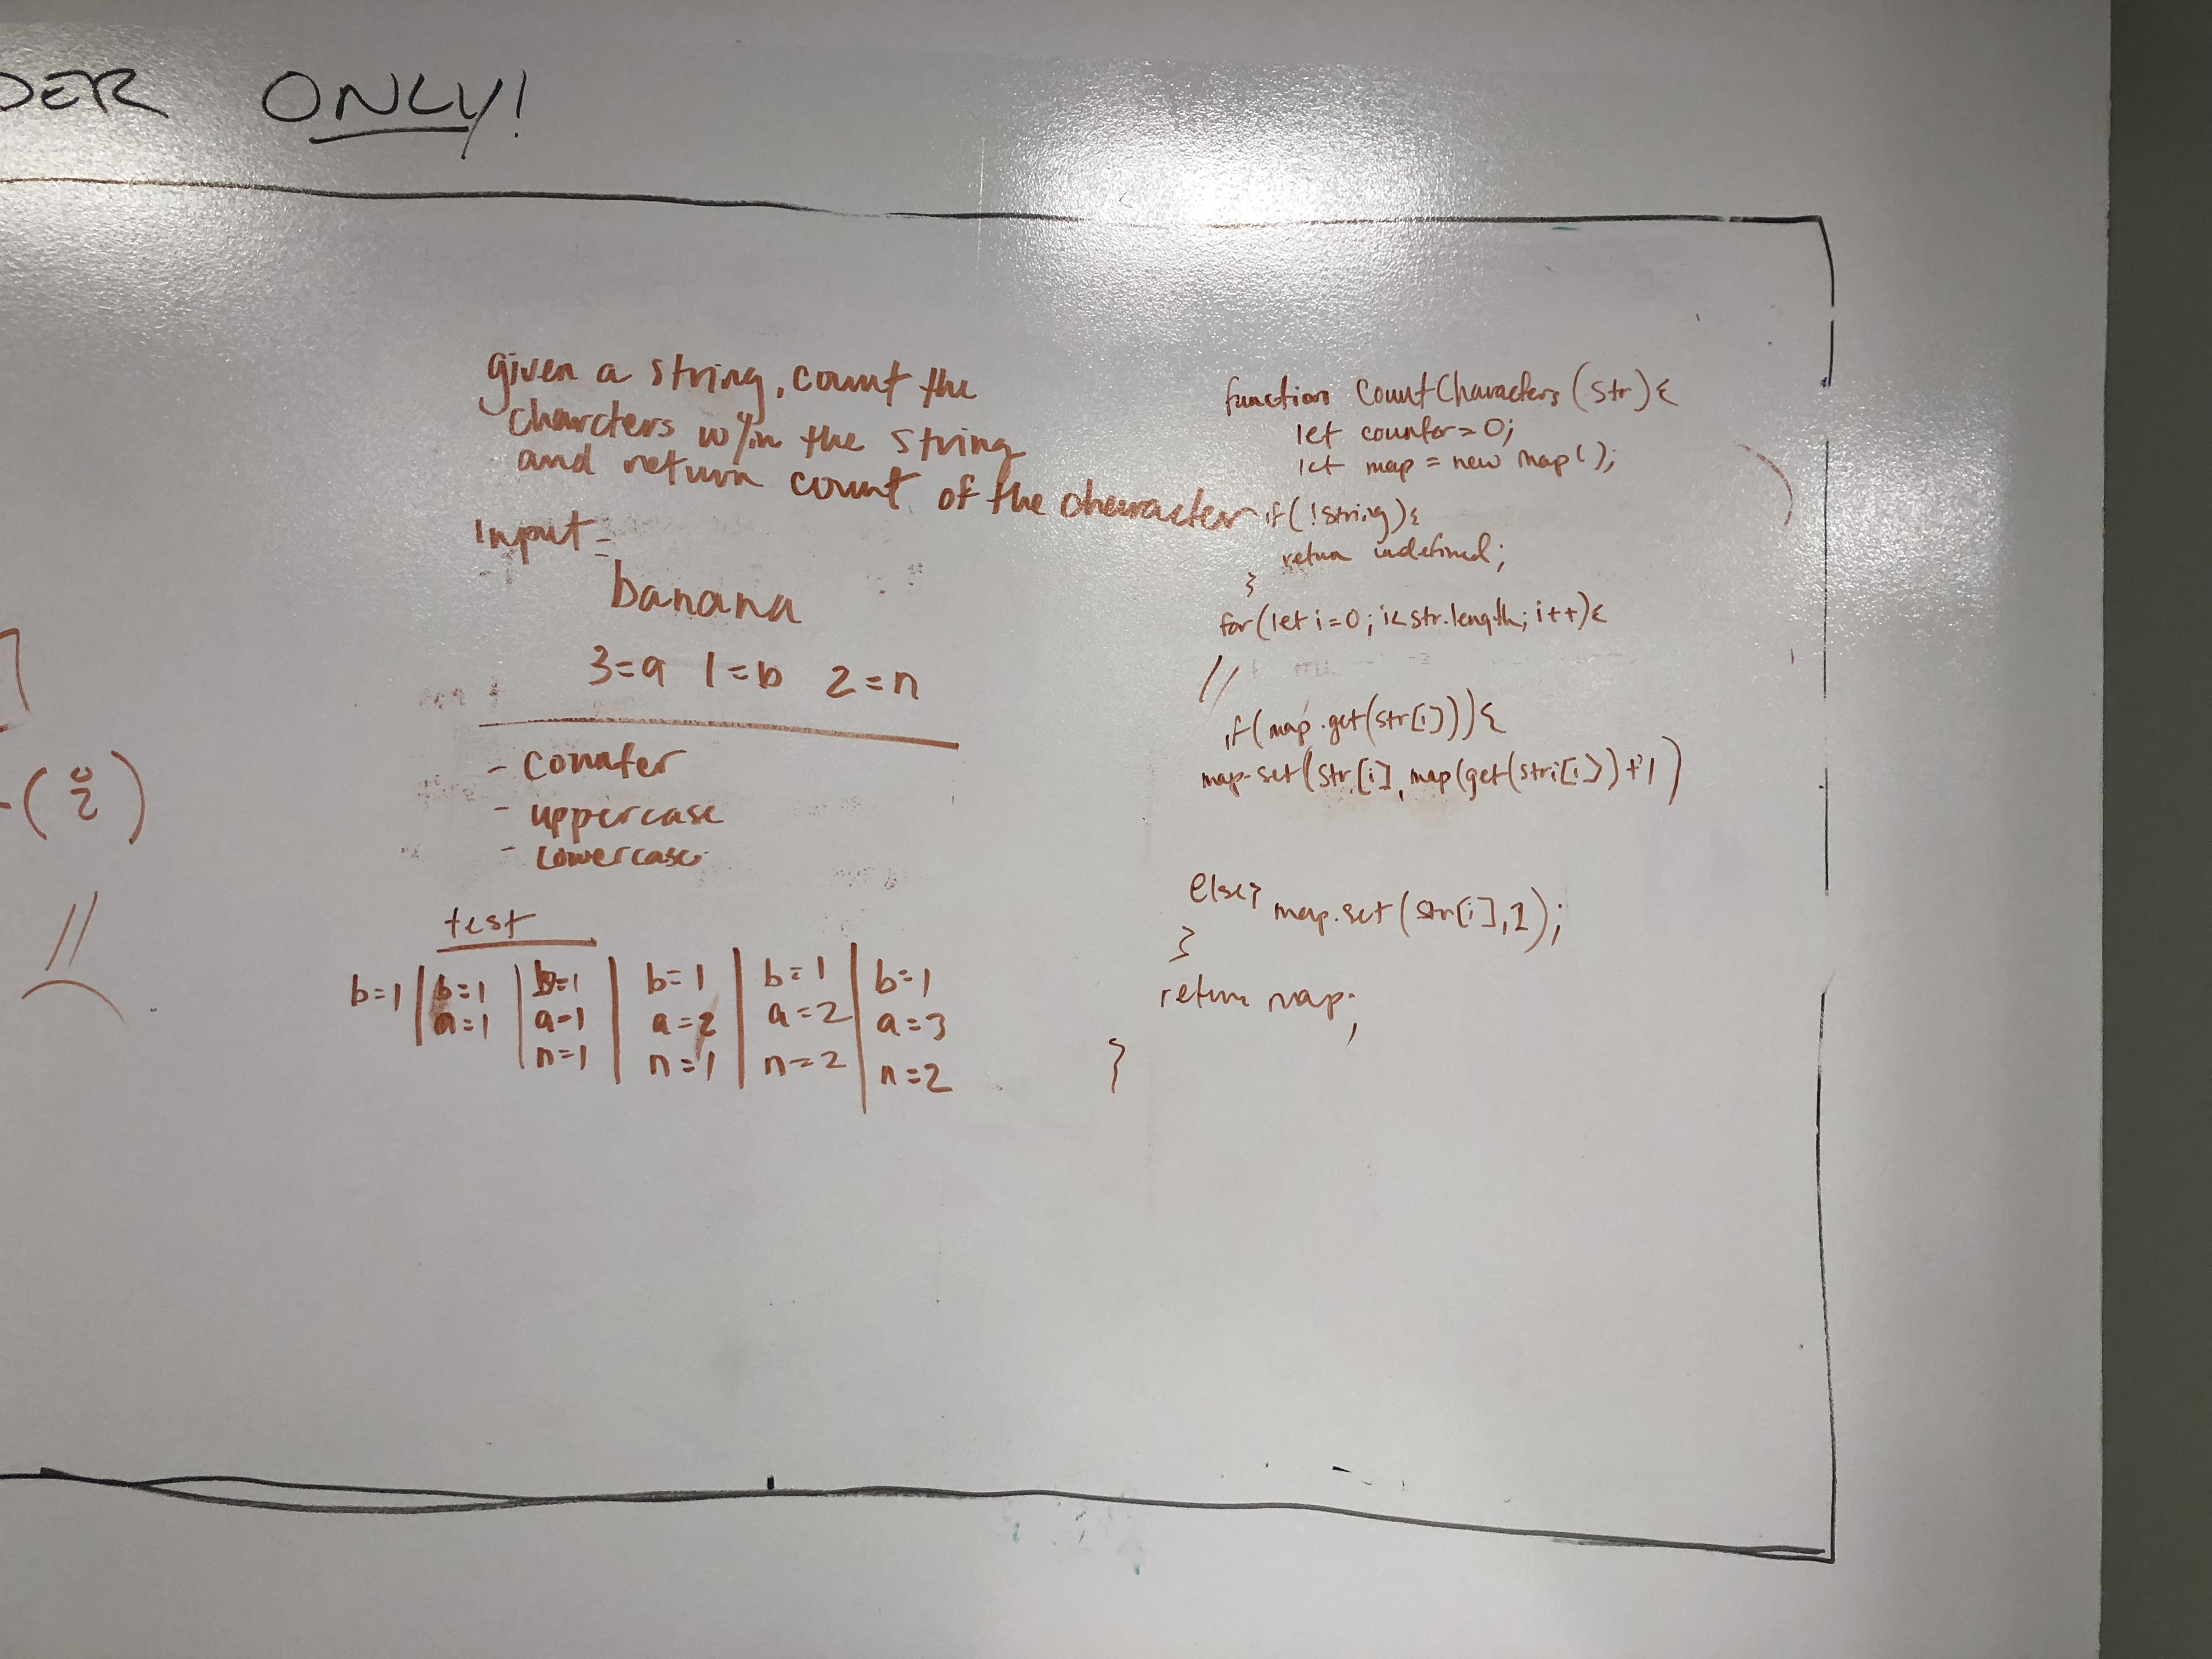 DER ONLY!
given a string, count the
charcters w/in the string
and return count of the character
Input =
banana
3=a 1=b 2=n
- counter
- uppercase
- lowercase
test
b=1 | b=1 | b=1 | b=1 | b=1 | b=1
a=1 a=1 a=2 a=2 a=3
n=1 n=1 n=2 n=2
function CountCharacters (str){
let counter=0;
let map = new map();
if(!string){
return undefined;
}
for(let i=0; i<str.length; i++){
//
if(map.get(str[i])){
map.set(str[i], map(get(stri[i])+1)
else{ map.set(str[i],1);
}
return map;
}
(0
2)
//